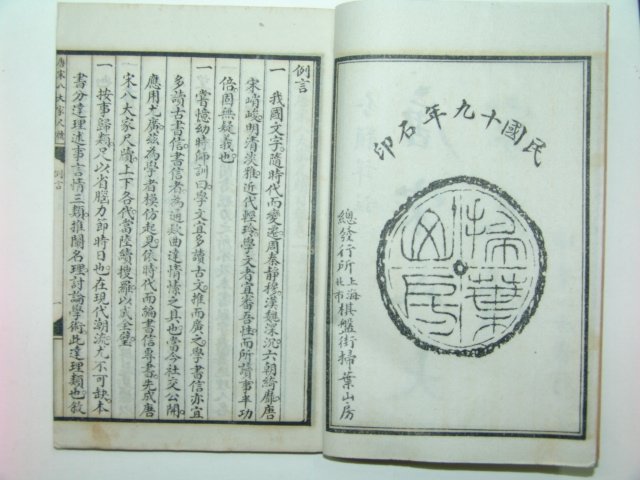 民國十九年石印
掃葉山房
總發行所上海北市棋盤街掃葉山房
例言
一 我國文字隨時代而變遷周秦靜穆漢魏深沉六朝綺靡唐
宋峭峻明清淡雅近代輕玲學文者宜審吾性而所讀事半功
倍固無疑義也
一 嘗憶幼時師訓曰學文宜多讀古文推而廣之學書信亦宜
多讀古書信書信者為通款曲達情愫之具也當今社交公開
應用尤廣兹為學者模仿起見依時代而編書信專書先成唐
宋八大家尺牘上下各代當陸續搜羅以成全璧
一 按事歸類尺以省腦力節時日也在現代潮流尤不可缺本
書分達理述事言情三類推闡名理討論學術此達理類也敘
唐宋八大家尺牘
例言
一